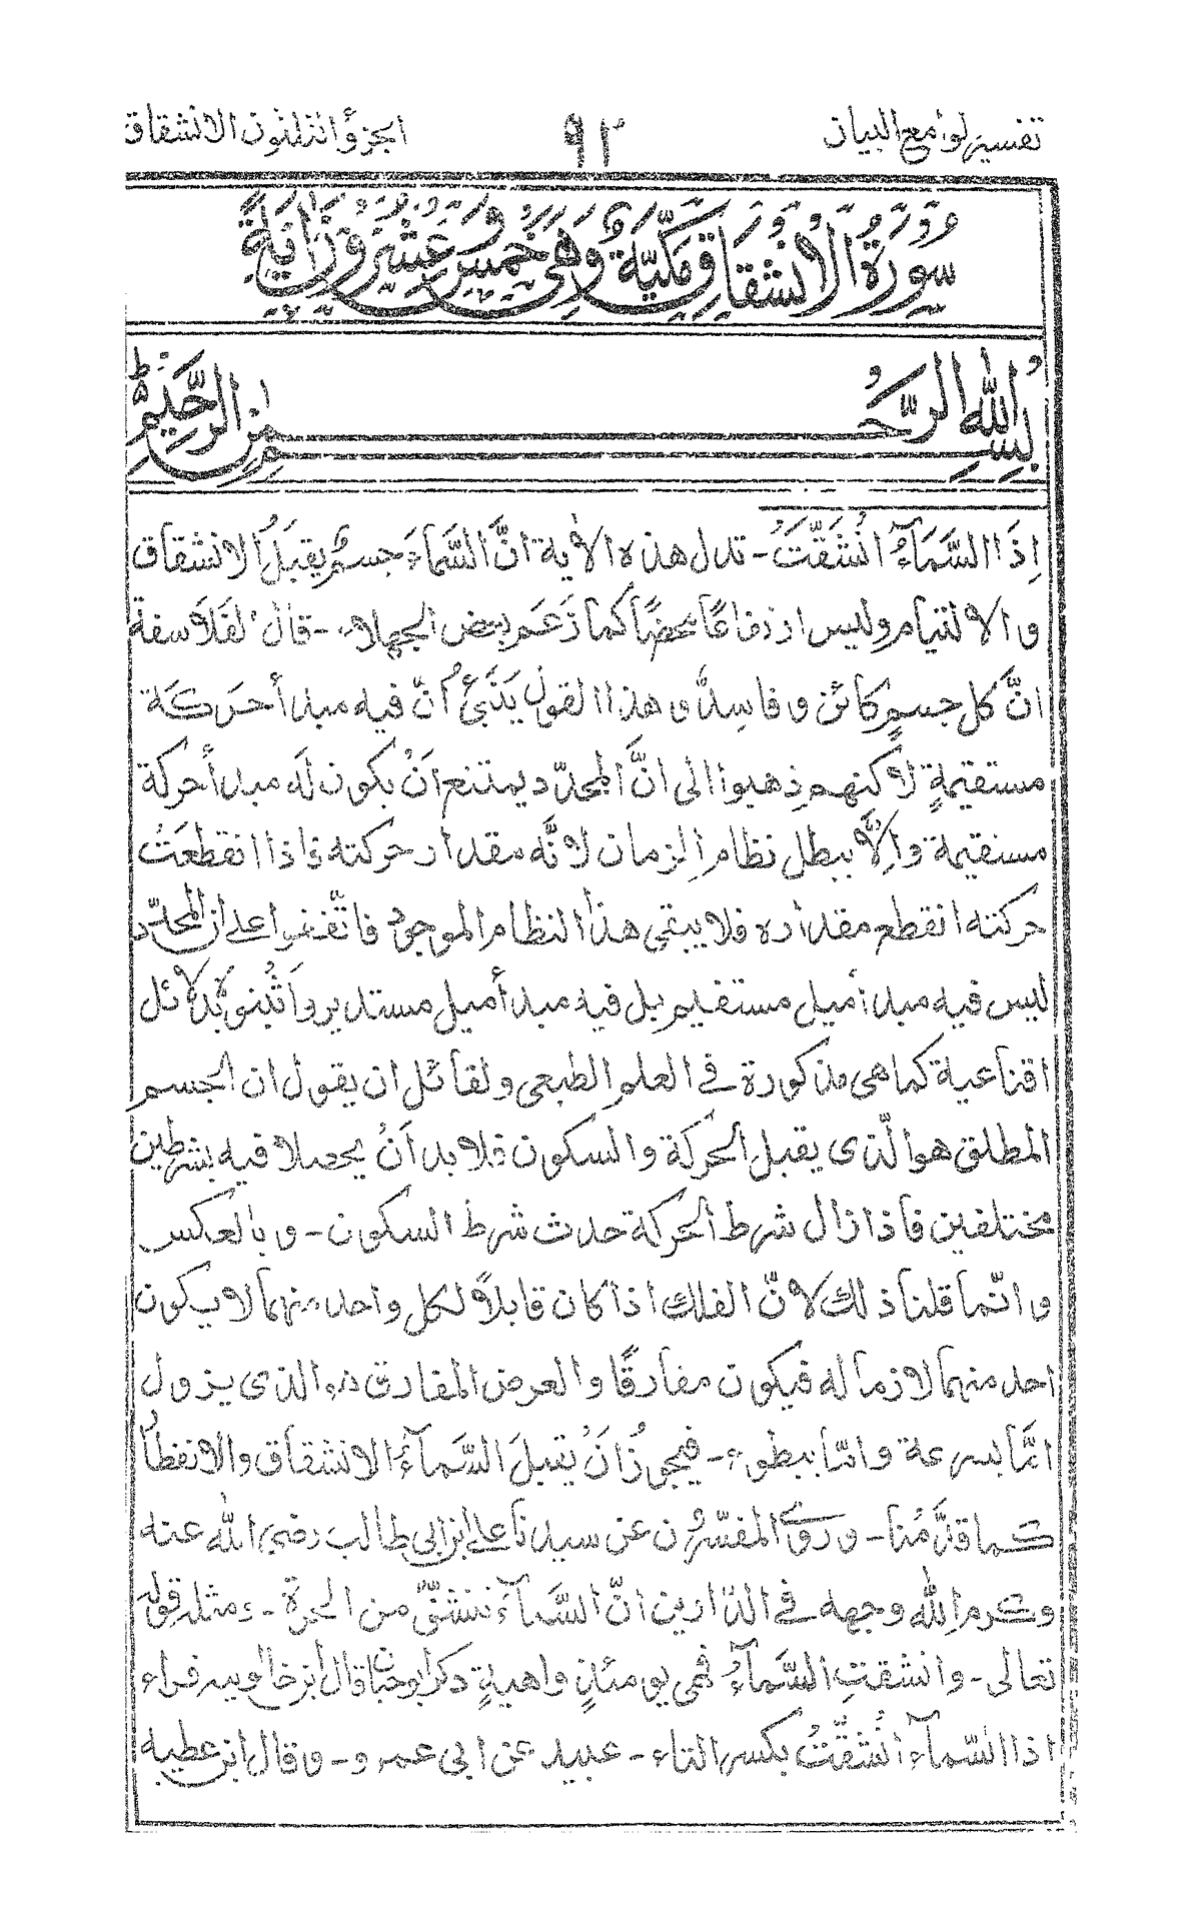 تفسير لوامع البيان
٩٢
الجزؤ الثلثون الانشقاق
سُورَةُ الْاِنْشِقَاقِ مَكِّيَّةٌ وَهِيَ خَمْسٌ وَّعِشْرُوْنَ اٰيَةً
بِسْمِ اللهِ الرَّحْمٰنِ الرَّحِيْمِ
اِذَا السَّمَآءُ انْشَقَّتْ - تدل هذه الاٰية انَّ السَّمَآءَ جسمٌ يقبَلُ الانشقاق
والالتيام وليس ارتفاعًا محضًا كما زَعَم بعض الجهلاء - قال الفَلَاسفة
انَّ كل جسمٍ كائن و فاسد و هذا القول يُنبئ أنّ فيه مبدأ حَرَكَة
مستقيمةٍ لاكنهم ذهبوا الى انَّ المحدّد يمتنع اَنْ يكون لَه مبدأ حركة
مستقيمة وَاِلَّا يبطل نظام الزمان لانَّه مقدار حركته فاذا انقطعَتْ
حركته انقطع مقداره فلا يبقى هذا النظام الموجود فاتَّفقوا على ان المحدّد
ليس فيه مبدأ ميل مستقيم بل فيه مبدأ ميل مستدير واَثْبتوْه بدَلائل
اقناعية كما هى مذكورة فى العلم الطبعى ولقائل ان يقول ان الجسم
المطلق هو الّذى يقبل الحركة والسكون فلابد اَنْ يحصلا فيه بشرطين
مختلفين فاذا زال شرط الحركة حدث شرط السكون - و بالعكس
و انّما قلنا ذلك لانّ الفلك اذا كان قابلاً لكل واحد منهما لا يكون
احد منهما لازما له فيكون مفارقًا والعرض المفارق هو الذى يزول
امَّا بسرعة وامّا ببطوء - فيجوزُ اَنْ يقبلَ السَّمآءُ الانشقاق والانفطار
كما قدَّمْنا - ورَوى المفسّرون عن سيدنا على ابن ابى طالب رضى الله عنه
وكرم الله وجهه فى الدّارين انّ السَّمآءَ تنشقّ من المجرة - ومثله قوله
تعالى - وانشقت السَّمآءُ فهى يومئذٍ واهيةٍ ذكر ابوحيان قال ابن خالويه قراء
اذا السّمآء انْشقَّتْ بكسر التاء - عبيد عن ابى عمرو - وقال ابن عطيه